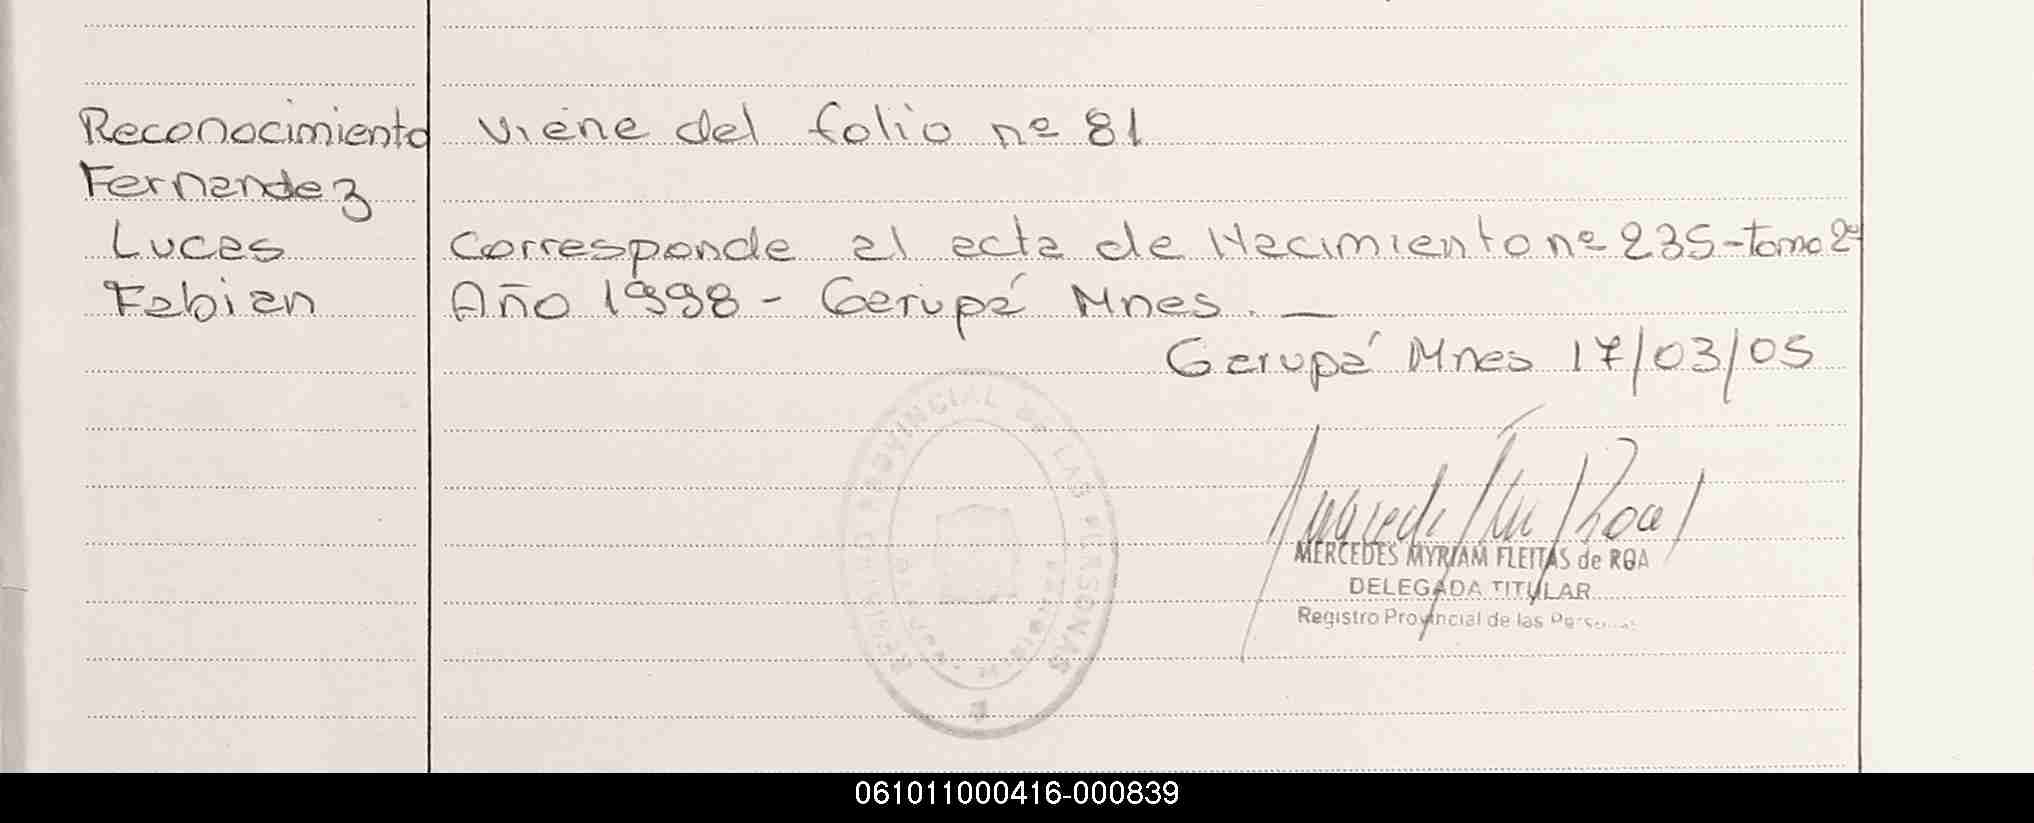 Reconocimiento
Fernandez
Lucas
Fabian
Viene del folio nº 81
Corresponde al acta de Nacimiento nº 235-tomo 2º
Año 1998 - Garupá Mnes. —
Garupá Mnes 17/03/05
REGISTRO PROVINCIAL DE LAS PERSONAS
MERCEDES MYRIAM FLEITAS de ROA
DELEGADA TITULAR
Registro Provincial de las Personas
061011000416-000839